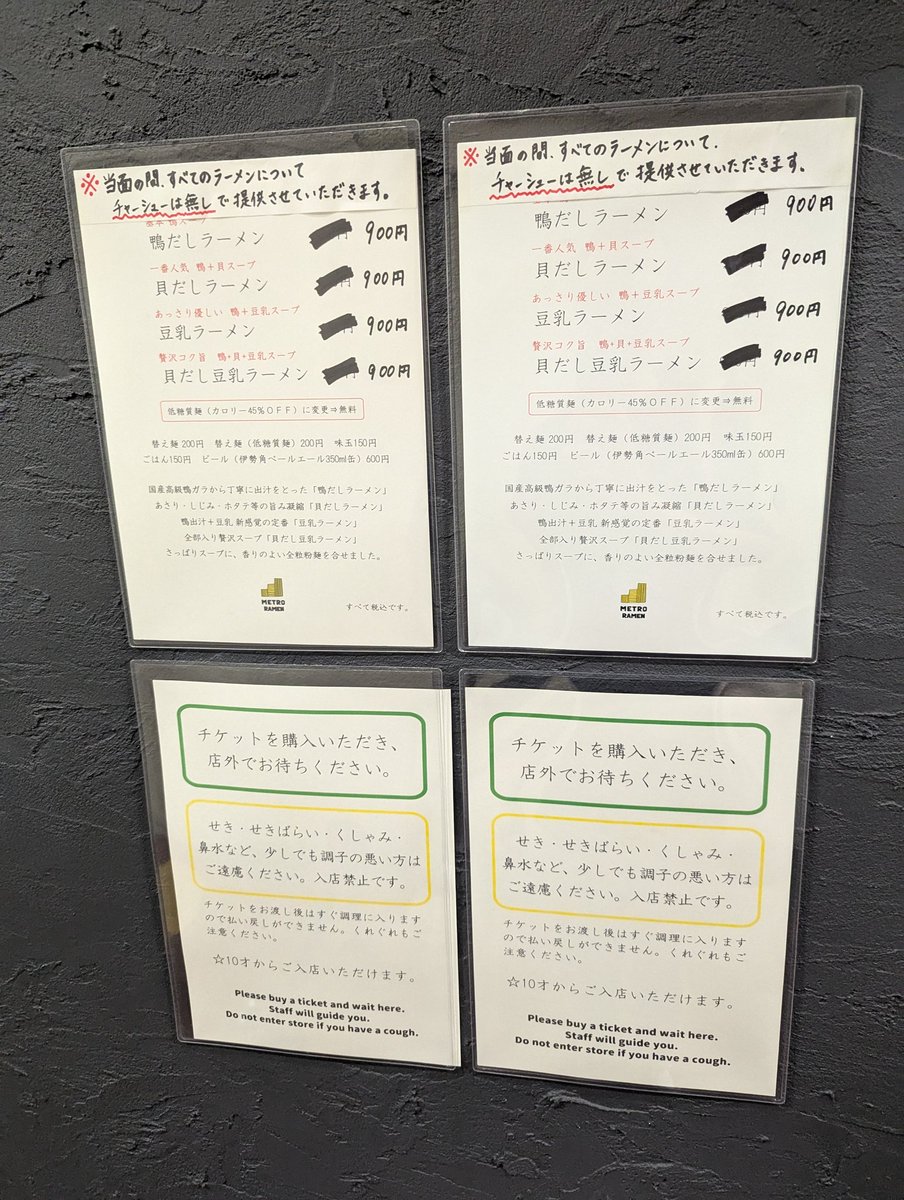 ※ 当面の間、すべてのラーメンについて
チャーシューは無しで提供させていただきます。
鴨だしラーメン 900円
一番人気 鴨+貝スープ
貝だしラーメン 900円
あっさり優しい 鴨+豆乳スープ
豆乳ラーメン 900円
贅沢コク旨 鴨+貝+豆乳スープ
貝だし豆乳ラーメン 900円
低糖質麺(カロリー45%OFF)に変更⇒無料
替え麺200円 替え麺(低糖質麺)200円 味玉150円
ごはん150円 ビール(伊勢角ペールエール350ml缶)600円
国産高級鴨ガラから丁寧に出汁をとった「鴨だしラーメン」
あさり・しじみ・ホタテ等の旨み凝縮「貝だしラーメン」
鴨出汁+豆乳 新感覚の定番「豆乳ラーメン」
全部入り贅沢スープ「貝だし豆乳ラーメン」
さっぱりスープに、香りのよい全粒粉麺を合せました。
METRO
RAMEN
すべて税込です。
※ 当面の間、すべてのラーメンについて、
チャーシューは無しで提供させていただきます。
鴨だしラーメン 900円
一番人気 鴨+貝スープ
貝だしラーメン 900円
あっさり優しい 鴨+豆乳スープ
豆乳ラーメン 900円
贅沢コク旨 鴨+貝+豆乳スープ
貝だし豆乳ラーメン 900円
低糖質麺(カロリー45%OFF)に変更⇒無料
替え麺200円 替え麺(低糖質麺)200円 味玉150円
ごはん150円 ビール(伊勢角ペールエール350ml缶)600円
国産高級鴨ガラから丁寧に出汁をとった「鴨だしラーメン」
あさり・しじみ・ホタテ等の旨み凝縮「貝だしラーメン」
鴨出汁+豆乳 新感覚の定番「豆乳ラーメン」
全部入り贅沢スープ「貝だし豆乳ラーメン」
さっぱりスープに、香りのよい全粒粉麺を合せました。
METRO
RAMEN
すべて税込です。
チケットを購入いただき、
店外でお待ちください。
せき・せきばらい・くしゃみ・
鼻水など、少しでも調子の悪い方は
ご遠慮ください。入店禁止です。
チケットをお渡し後はすぐ調理に入ります
ので払い戻しができません。くれぐれもご
注意ください。
☆10才からご入店いただけます。
Please buy a ticket and wait here.
Staff will guide you.
Do not enter store if you have a cough.
チケットを購入いただき、
店外でお待ちください。
せき・せきばらい・くしゃみ・
鼻水など、少しでも調子の悪い方は
ご遠慮ください。入店禁止です。
チケットをお渡し後はすぐ調理に入ります
ので払い戻しができません。くれぐれもご
注意ください。
☆10才からご入店いただけます。
Please buy a ticket and wait here.
Staff will guide you.
Do not enter store if you have a cough.